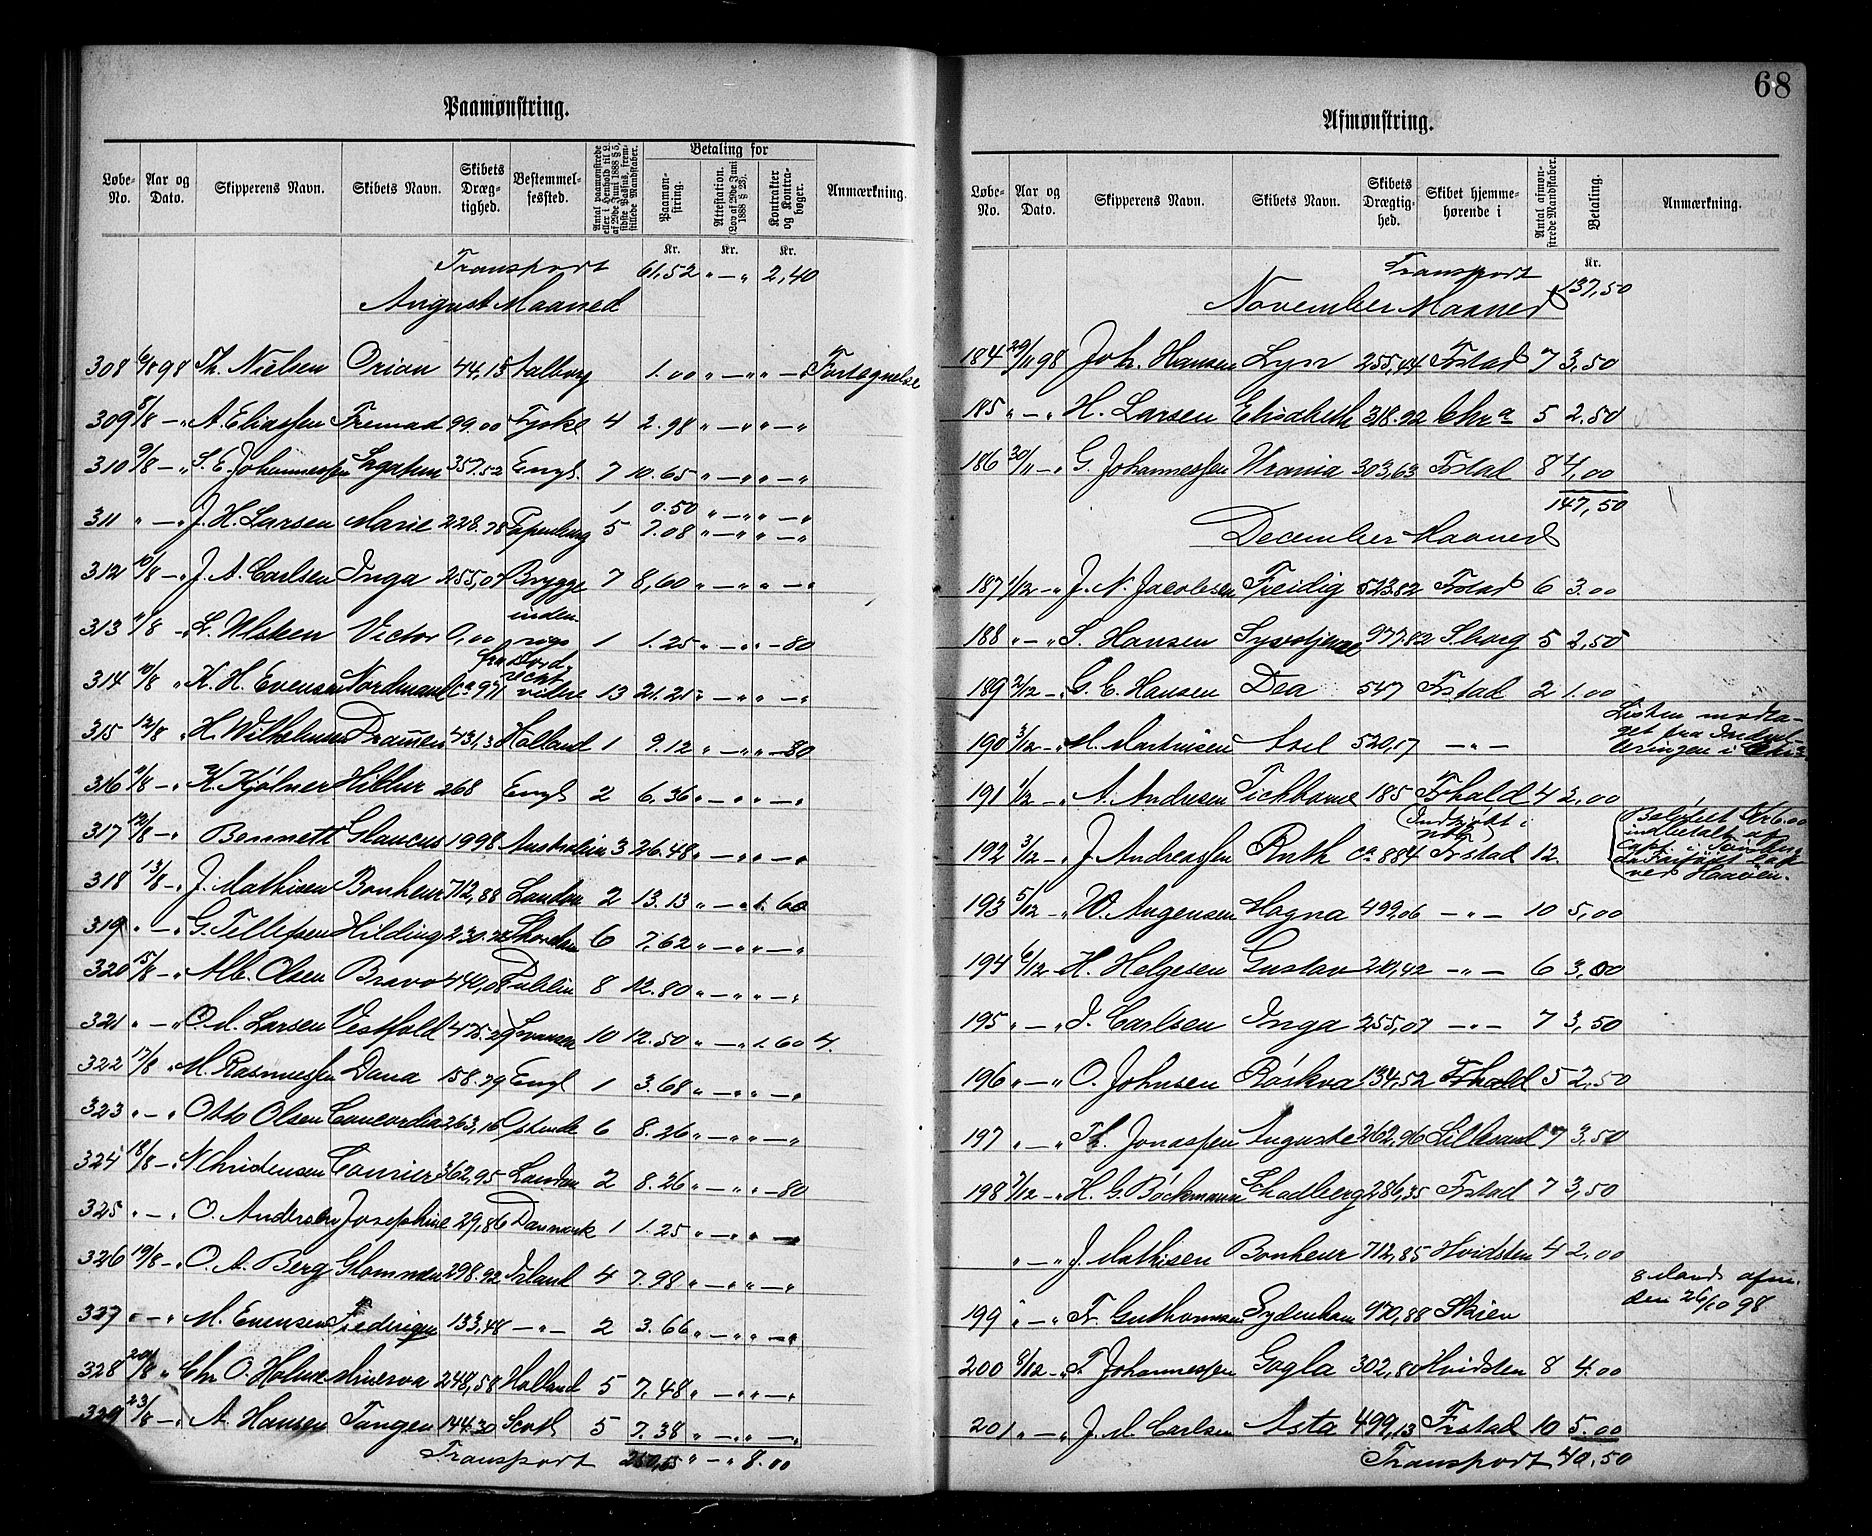 68
Paamønstring.
Løbe-No. Aar og Dato. Skipperens Navn. Skibets Navn. Skibets Dræg-tighed. Bestemmel-sessted. Antal paamønstrede eller i Henhold til L. af 29de Juni 1888 § 5, sidste Passus, frem-stillede Mandskaber. Betaling for Paamøn-string. Attestation. (Lov af 29de Juni 1888 § 23). Kontrakter og Kontra-bøger. Anmærkning.
Kr. Kr. Kr.
Transport 61,52 " — " 2,40
August Maaned
308 6/8 98 Th. Nielsen Orion 44,15 Aalborg 1.00 " — " " — Forsegnelse
309 8/8 — " A. Eliassen Fremad 99.00 Tyske 4 2.98 " — " " — "
310 9/8 — " S. E. Johannessen 357.52 Engl. 7 10.65 " — " " — "
1 0.50 " — " " — "
311 " — " J. H. Larsen Marie 228.78 Papenburg 5 7.08 " — " " — "
312 10/8 — " J. A. Carlsen Inga 255,07 Brygge 7 8,60 " — " " — "
inden-
313 11/8 — " L. Ulsken Victor 0,00 rigs 1 1.25 " — " " — 80
fra Dord-
recht
314 10/8 " K. H. Evensen Nordmand Ca 971 videre 13 21.21 " — " " — "
315 12/8 " H. Wilhelmsen Drammen 431,3 Holland 1 9.12 " — " " — 80
316 11/8 — " K. Kjølner Hilbur 268 Engl 2 6.36 " — " " — "
317 12/8 — " Bennett Glaucus 1998 Australien 3 26.48 " — " " — "
318 13/8 — " J. Mathisen Bonheur 712,88 London 2 13.13 " — " 1.60
319 " — " G. Tellefsen Hilding 230.28 6 7.62 " — " " — "
320 15/8 — " Alb. Olsen Bravo 440,08 Dublin 8 12.80 " — " " — "
321 " — " O. M. Larsen Vestfold 475.29 10 12.50 " — " 1.60 4.
322 17/8 " M. Rasmussen Dana 158.79 Engl 1 3.68 " — " " — "
323 " — " Otto Olsen Concordia 263,16 Ostende 6 8.26 " — " " — "
324 18/8 — " N. Christensen Courier 362,95 London 2 8.26 " — " " — 80
325 " — " O. Andersen Josephine 29,86 Danmark 1 1.25 " — " " — "
326 19/8 — " O. A. Berg Glommen 298.92 Irland 4 7.98 " — " " — "
327 " — " M. Evensen Frederiggen 133,48 — " — 2 3.66 " — " " — "
328 20/8 " Chr O. Holme Minerva 248,58 Holland 5 7.48 " — " " — "
329 23/8 — " A. Hansen Tangen 144.30 Scotl 5 7.38 " — " " — "
Transport " — " 8.00
Afmønstring.
Løbe-No. Aar og Dato. Skipperens Navn. Skibets Navn. Skibets Drægtig-hed. Skibet hjemme-hørende i Antal afmøn-strede Mandskaber. Betaling. Anmærkning.
Kr.
Transport 137,50
November Maaned
184 29/11 98 Joh. Hansen Lyn 255,44 Fstad 7 3,50
185 " — " H. Larsen Elisabeth 318.92 Chr a 5 2.50
186 30/11 — " G. Johannessen Urania 303,63 Fstad 8 4,00
147,50
December Maaned
187 1/12 — " J. N. Jacobsen Freidig 523.82 Fstad 6 3.00
188 " — " S. Hansen Syvstjernen 977.82 S.borg 5 2,50
189 2/12 — " G. E. Hansen Dea 547 Fstad 2 1.00
190 3/12 — " M. Martinsen Axel 520,17 — " — Listen modta-
get fra Indrul-
leringen i Chr a
191 1/12 — " A. Andresen Tichborne 185 Frhald 4 2.00
192 3/12 — " J. Andreassen Ruth Ca 884 Fstad 12. Beløbet Kr 6.00
indbetalt af
193 5/12 — " W. Augensen Hogna 499,06 — " — 10 5,00
194 6/12 — H. Helgesen Gustav 210,42 — " — 6 3.00
195 " — " J. Carlsen Inga 255,07 — " — 7 3,50
196 " — " O. Johnsen Röskva 134,52 Frhald 5 2.50
197 " — " Th. Jonassen Auguste 262,96 Lillesand 7 3,50
198 7/12 — " H. G. Böckmann Schadberg 286,35 Fstad 7 3,50
" — " J. Mathisen Bonheur 712,85 Hvidsten 4 2.00
199 " — " F. Guthormsen Sydenham 470,88 Skien 8 Mand afm.
den 26/10 98
200 8/12 — " F. Johannessen Gogla 302,80 Hvidsten 8 4.00
201 " — " J. M. Carlsen Asta 499,13 Frstad 10 5.00
Transport 40.50